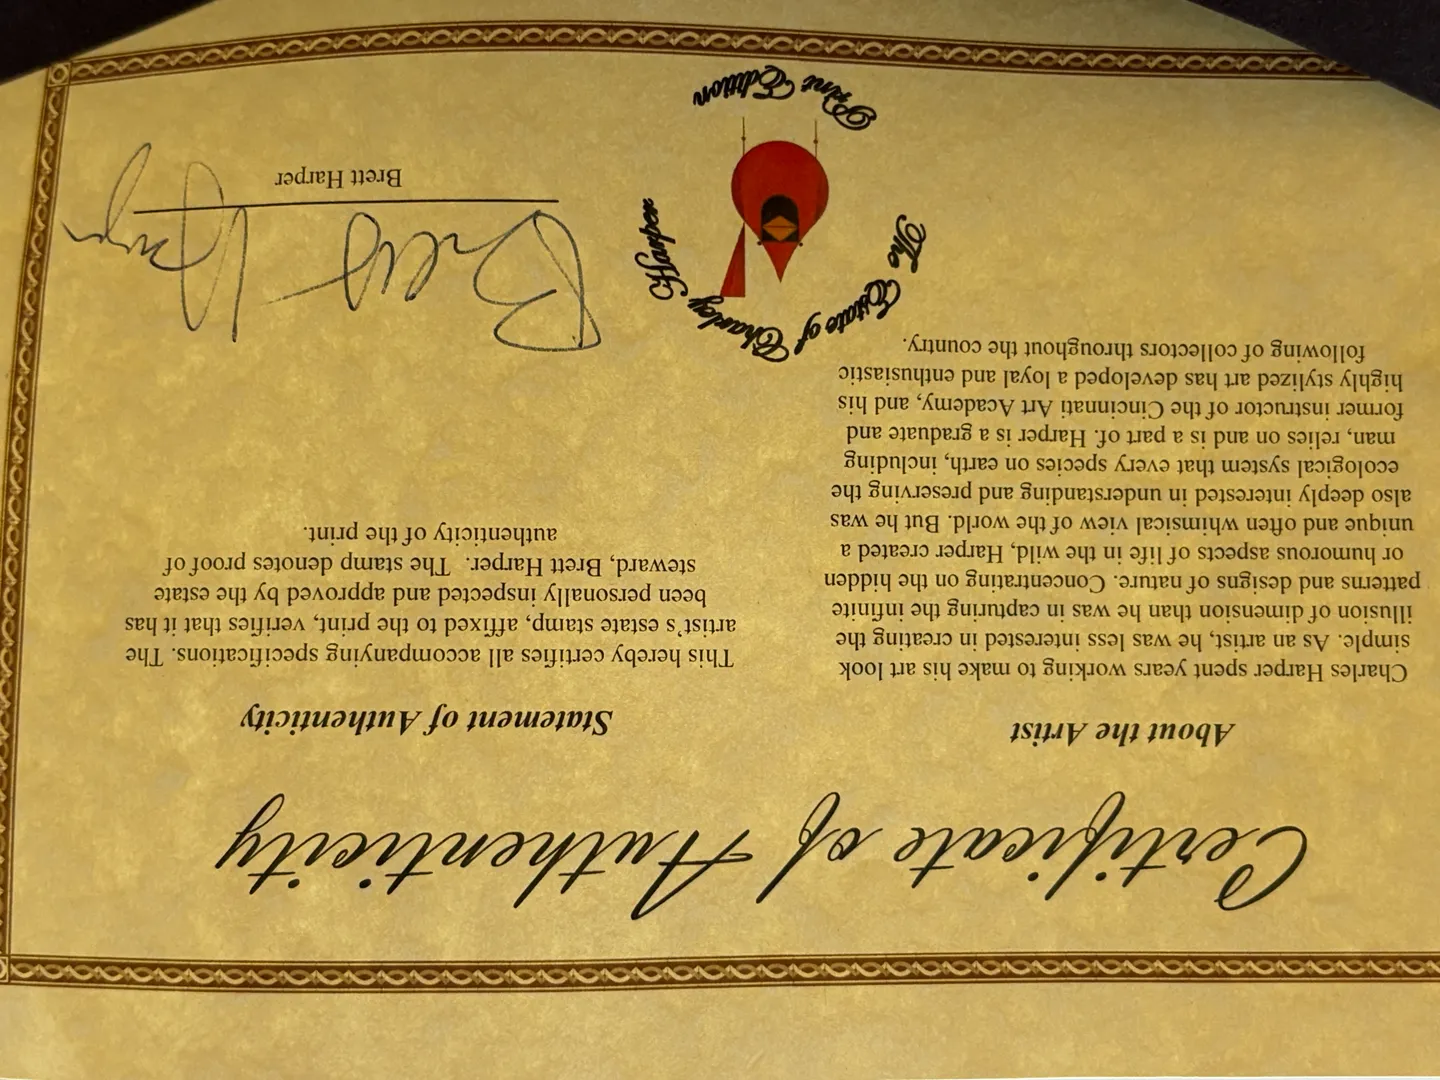 Certificate of Authenticity
About the Artist
Charles Harper spent years working to make his art look
simple. As an artist, he was less interested in creating the
illusion of dimension than he was in capturing the infinite
patterns and designs of nature. Concentrating on the hidden
or humorous aspects of life in the wild, Harper created a
unique and often whimsical view of the world. But he was
also deeply interested in understanding and preserving the
ecological system that every species on earth, including
man, relies on and is a part of. Harper is a graduate and
former instructor of the Cincinnati Art Academy, and his
highly stylized art has developed a loyal and enthusiastic
following of collectors throughout the country.
Statement of Authenticity
This hereby certifies all accompanying specifications. The
artist's estate stamp, affixed to the print, verifies that it has
been personally inspected and approved by the estate
steward, Brett Harper. The stamp denotes proof of
authenticity of the print.
The Estate of Charley Harper
Print Edition
Brett Harper
Brett Harper